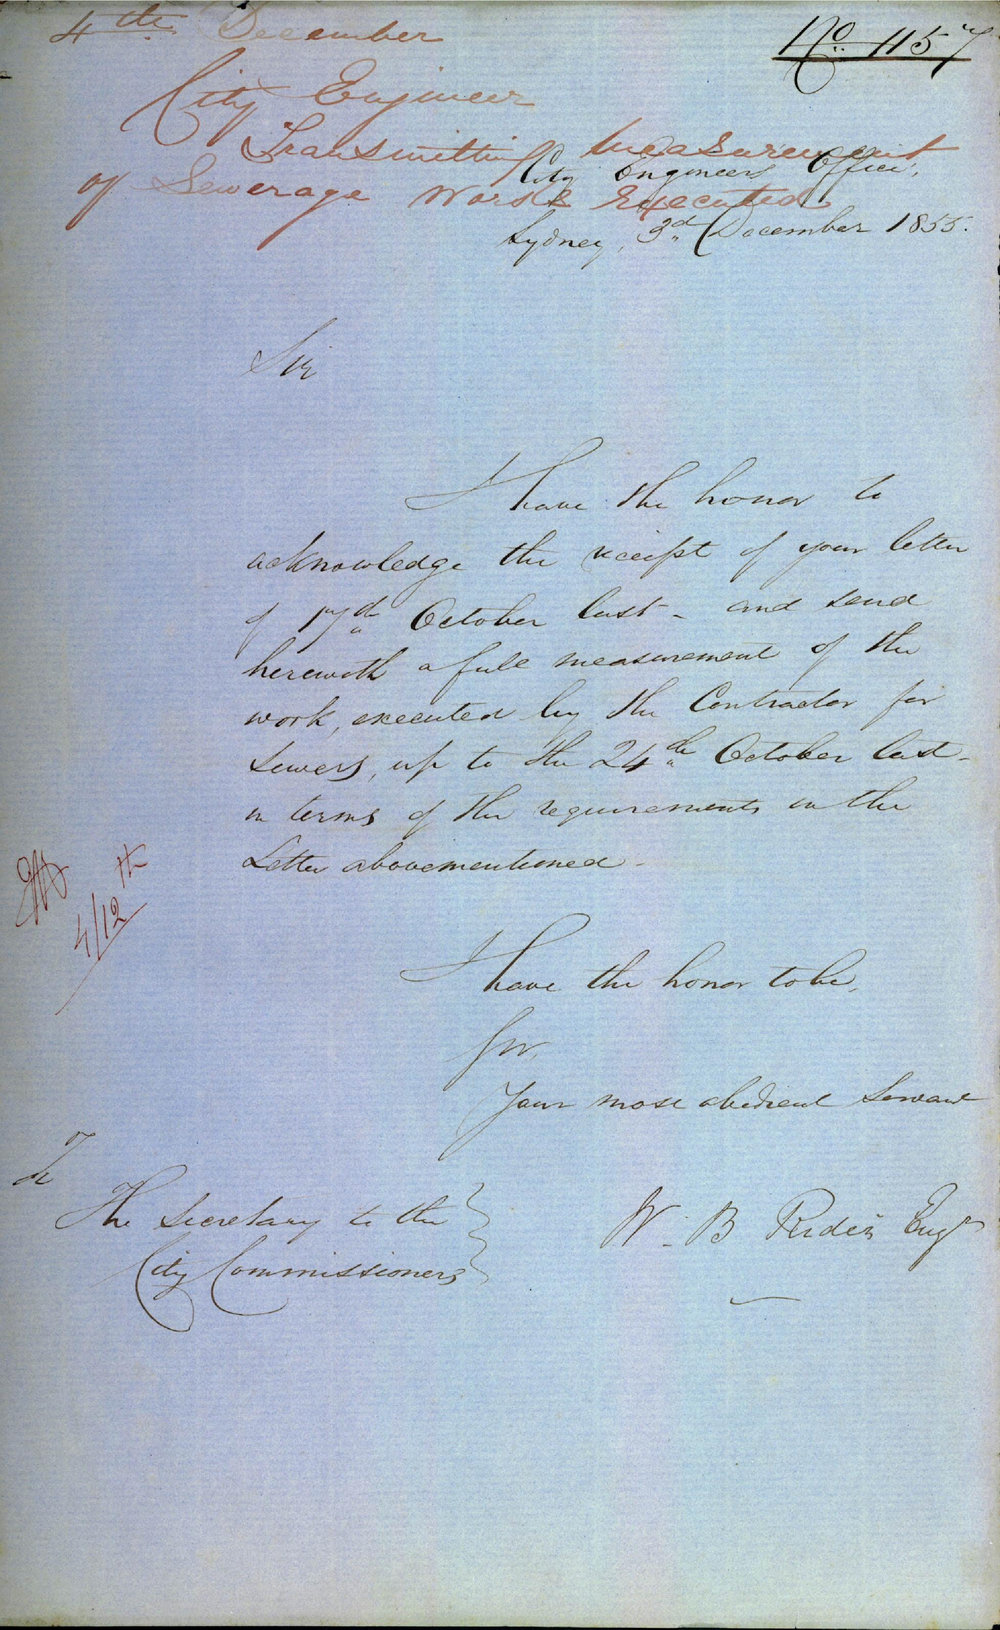 4th December
No 1157
City Engineer
Transmitting Measurement
of Sewerage Works Executed
City Engineers Office,
Sydney, 3rd December 1855.
Sir
I have the honor to
acknowledge the receipt of your letter
of 17th October last - and send
herewith a full measurement of the
work, executed by the Contractor for
Sewers, up to the 24th October last -
in terms of the requirements in the
Letter abovementioned -
4/12th
I have the honor to be,
Sir,
Your most obedient Servant
W. B Rider Engr
To
The Secretary to the
City Commissioners